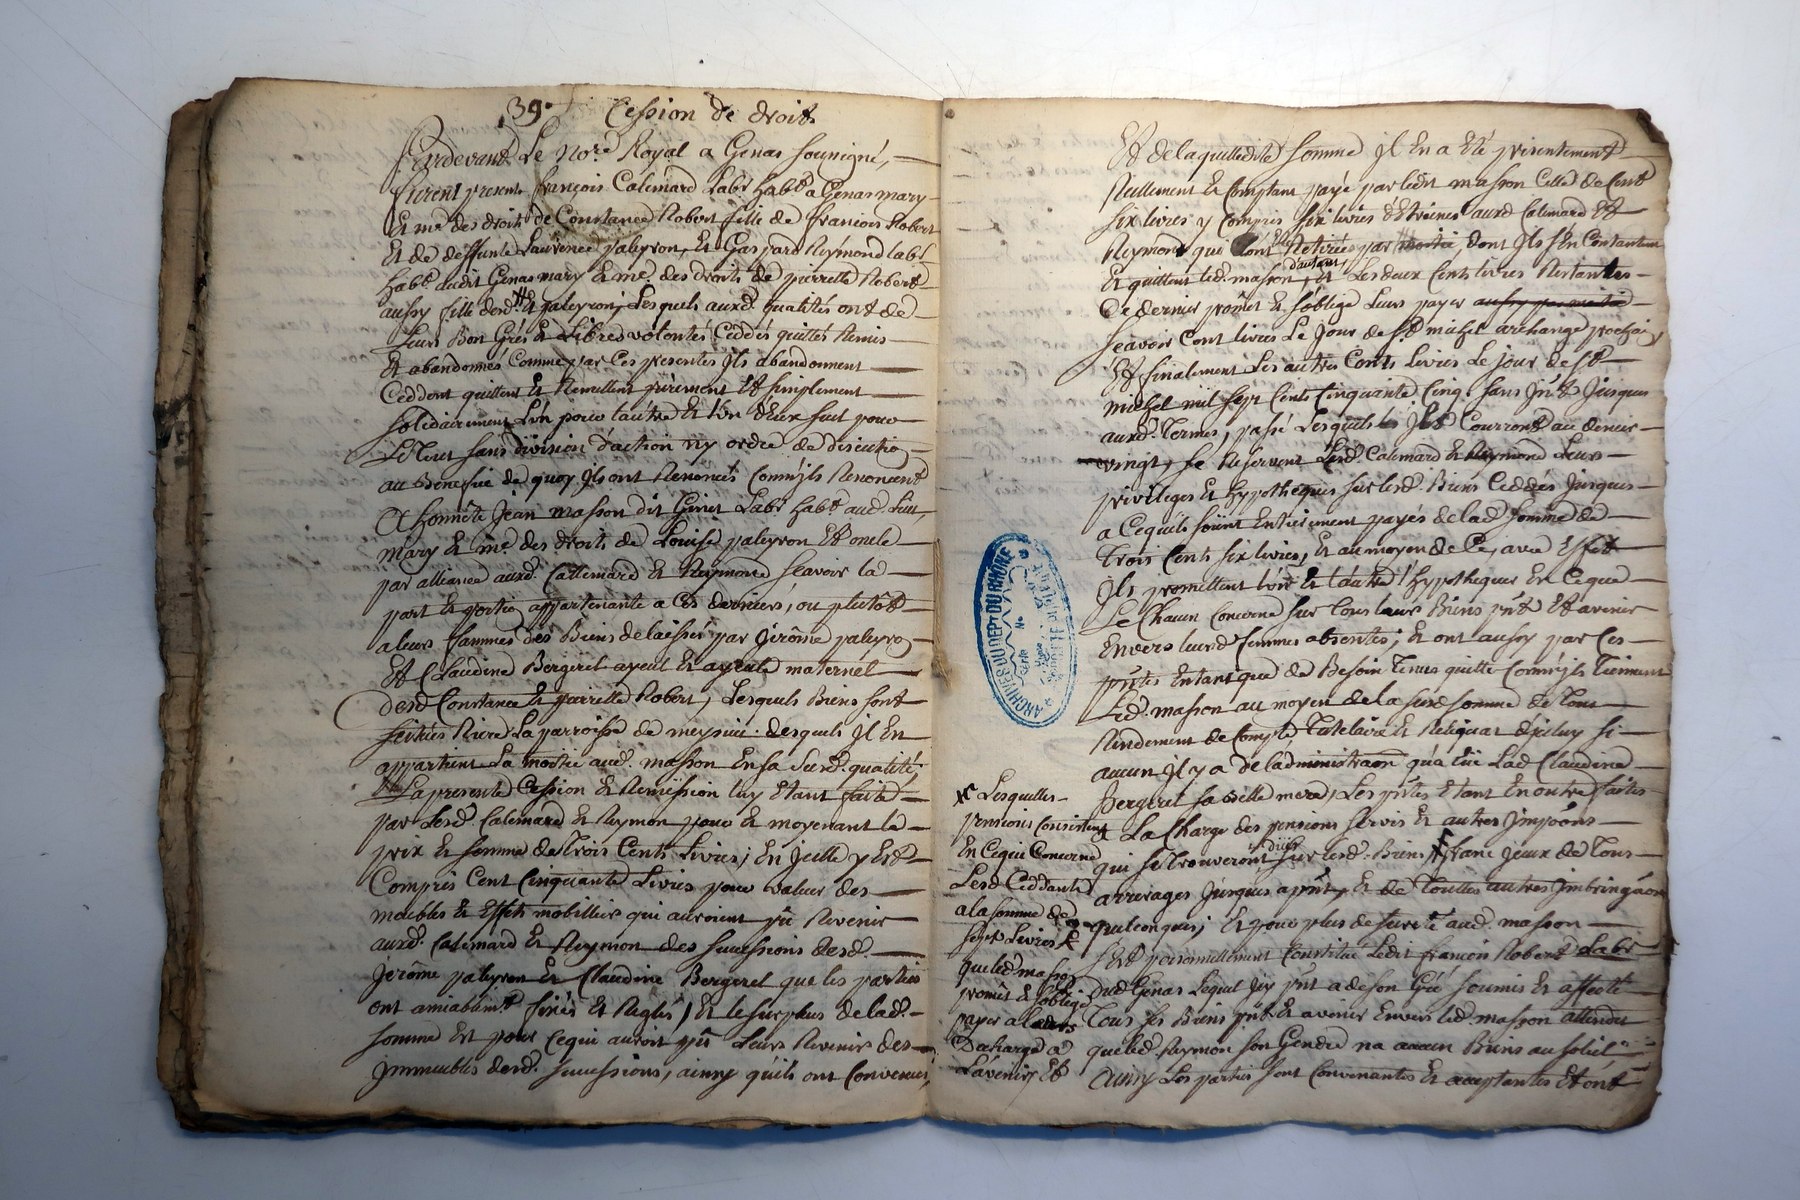 39e Cession de droit
Pardevant Le Nore Royal a Genas soussigné,
Furent presents françois Calemard Labr habt a Genas mary
Et me des droits de Constance Robert fille de françois Robert
Et de deffunte Laurence paleyron, Et Gaspard Reymond labr
habt audit Genas mary Et me des droits de pierrette Robert
aussy fille desd. Et paleyron, Lesquels auxd. qualités ont de
Leurs Bon Grés Et Libres volontés Ceddés quittés Remis
Et abandonnés Comme par Ces presentes Ils abandonnent
Ceddent quittent Et Remettent purement Et simplement
solidairement L'un pour l'autre Et l'un d'Eux seul pour
Le Tout sans division d'action ny ordre de discution
au Benefice de quoy Ils ont Renoncés Comm'jls Renoncent
A honnête Jean masson dit Genet Labr habt aud. Lieu,
mary Et me des droits de Louise paleyron Et oncle
par alliance auxd. Callemard Et Reymond scavoir la
part Et portion appartenante a Ces derniers, ou plutôt
a leurs femmes des Biens delaissés par Jerôme paleyron
Et Claudine Bergeret ayeul Et ayeule maternel
desd Constance Et pierrette Robert, Lesquels Biens sont
scitués Riere La parroisse de meysieu. desquels Il En
appartient La moitié aud. masson En sa susd. qualité,
La presente Cession Et Remission luy Etant faite
par Lesd. Calemard Et Reymon pour Et moyenant Le
prix Et somme de Trois Cents Livres; En Icelle y Est
Compris Cent Cinquante Livres pour valeur des
meubles Et Effets mobilliers qui auroient pû Revenir
auxd. Calemard Et Reymon des successions desd.
Jerôme paleyron Et Claudine Bergeret que les parties
ont amiablemt. fixés Et Reglés, Et le surplus de lad.
somme Est pour Cequi auroit pû Leurs Revenir des
Immeubles desd. successions, ainsy qu'ils ont Convenus,
Et de laquelledite somme Il En a Eté presentement
Reellement Et Comptant payé par ledit masson Celle de Cent
six livres y Compris six livres d'Etrenes auxd Calemard Et
Reymond qui L'ont Retirés par moitié, dont Ils s'En Contentent
Et quittent led. masson, d'autant, Et Les deux Cents livres Restantes
Ce dernier promet Et s'oblige Leurs payer aussy par moitié
scavoir Cent livres Le Jour de St. michel archange prochain
Et finalement Les autres Cents livres Le jour de St
michel mil sept Cents Cinquante Cinq. sans Int. Jusques
auxd. Termes, passé Lesquels Ils Courront au denier
vingt, se Reservent Lesd. Calemard Et Reymond Leurs
privileges Et hypotheques sur lesd. Biens Ceddés Jusques
a Cequ'ils soient Entierement payés de lad somme de
Trois Cents six livres, Et au moyen de Ce, avec Effet
Ils promettent l'un Et l'autre d'hypothequer En Ceque
Le Chacun Concerne sur Tous leurs Biens pnts Et avenir
Envers leursd femmes absentes; Et ont aussy par Ces
pntes Entant que de Besoin Tenus quitte Comm'jls Tiennent
Led. masson au moyen de la susd somme de Tout
Rendement de Compte Tutelaire Et Reliquat d'jceluy si
aucun Il y a de l'administraon qu'a Eüe Lad Claudine
Bergeret sa Belle mere, Les pntes Etant En outre faites
a La Charge des pensions servis Et autres Imposons
qui se Trouveront düs sur lesd. Biens franc Iceux de Tous
arrerages Jusques apnt, Et de Touttes autres Imbringaons
quelconques; Et pour plus de sureté aud. masson
s'Est personnellement Constitué Ledit françois Robert Labr
dud Genas Lequel Icy pnt a de son Gré soumis Et affecté
Tous ses Biens pnts Et avenir Envers led. masson attendu
que led. Reymon son Gendre na aucun Biens au soleil
ainsy Les parties sont Convenantes Et acceptantes Et ont
Lesquelles
pensions Consistent
En Cequi Concerne
Lesd Ceddants
a la somme de
sept Livres
que led. masson
promet Et s'oblige
payer a leurs
Decharge a
L'avenir Et
ARCHIVES DU DEPT DU RHÔNE
Série
No